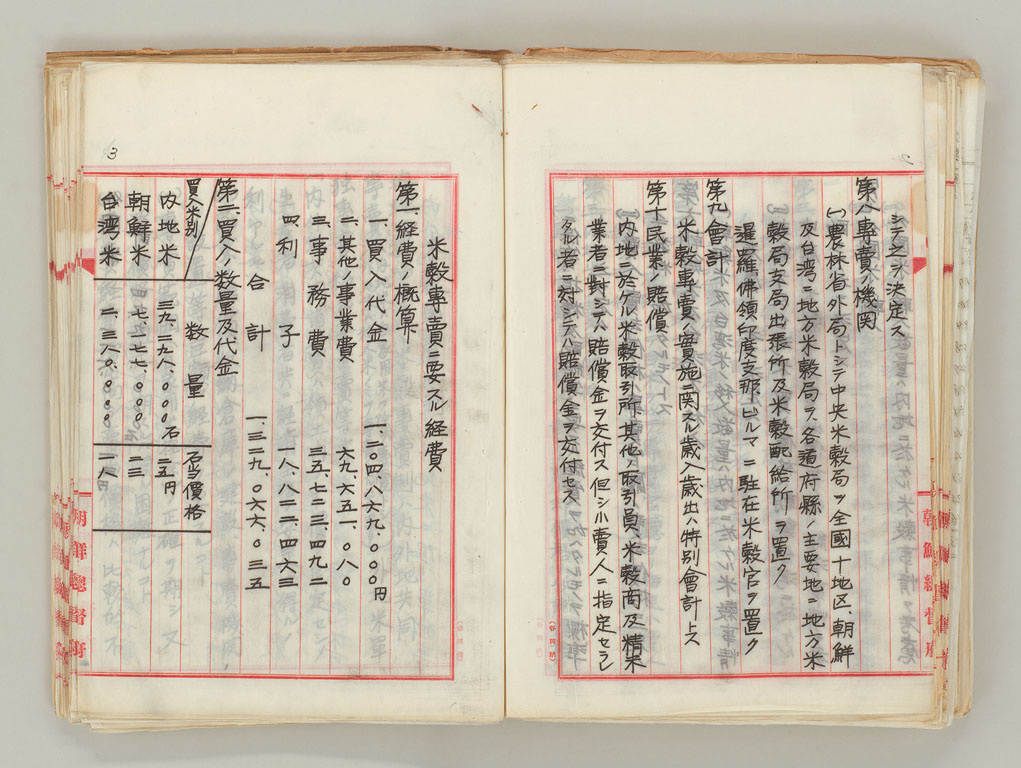 シテ之ヲ決定ス
第八、専賣ノ機関
(一)農林省外局トシテ中央米穀局ヲ全國十地区、朝鮮
及台湾ニ地方米穀局ヲ、各道府縣ノ主要地ニ地方米
穀局支局出張所及米穀配給所ヲ置ク
暹羅、佛領印度支那、ビルマニ駐在米穀官ヲ置ク
第九、會計
米穀専賣ノ實施ニ関スル歳入歳出ハ特別會計トス
第十、民業ノ賠償
内地ニ於ケル米穀取引所、其他ノ取引員、米穀商及精米
業者ニ對シテハ賠償金ヲ交付ス但シ小賣人ニ指定セラレ
タル者ニ対シテハ賠償金ヲ交付セス
2
朝鮮總督府
3
米穀専賣ニ要スル経費
第一、経費ノ概算
一、買入代金 一、二〇四、八六九、〇〇〇円
二、其他ノ事業費 六九、六五一、〇八〇
三、事務費 三五、七二三、四九二
四、利子 一八、八二二、四六三
合計 一、三二九、〇六六、〇三五
第二、買入ノ数量及代金
買入米別 数量 石当價格
内地米 三九、二九八、〇〇〇石 三五円
朝鮮米 七、一七七、〇〇〇 二三
台湾米 二、三八〇、〇〇〇 一八円
朝鮮總督府